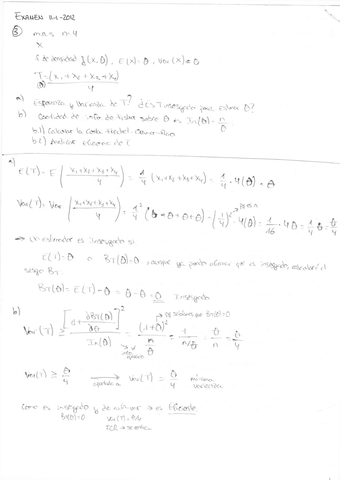 EXAMEN 11-1-2012
③ m.a.s n=4
X
f de densidad f(x,θ), E(X)=θ, Var(X)=θ
T = (x₁+x₂+x₃+x₄)/4
a) Esperanza y Varianza de T? ¿Es T insesgado para estimar θ?
b) Cantidad de info de Fisher sobre θ es In(θ) = n/θ
b.1) Calcular la Cota Frechet-Cramer-Rao
b.2) Analizar eficiencia de T
a)
E(T) = E((x₁+x₂+x₃+x₄)/4) = 1/4 (x₁+x₂+x₃+x₄) = 1/4 · 4(θ) = θ
Var(T) = Var((x₁+x₂+x₃+x₄)/4) = 1/4² (θ+θ+θ+θ) = (1/4)² · 4(θ) = 1/16 · 4θ = 1/4 θ = θ/4
→ Un estimador es insesgado si
E(T)=θ o BT(θ)=0, aunque ya puedo afirmar que es insesgado calcularé el
sesgo BT.
BT(θ) = E(T) - θ = θ - θ = 0 Insesgado
b)
→ ya sabíamos que BT(θ)=0
Var(T) ≥ [1 + ∂BT(θ)/∂θ]² / In(θ) = (1+0)² / (n/θ) = 1/(n/θ) = θ/n = θ/4
Var(T) ≥ θ/4 → Var(T) = θ/4 mínima
varianza
Como es insesgado y de → es Eficiente
BT(θ)=0